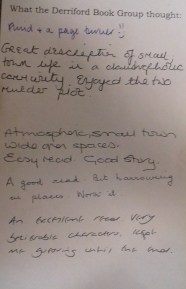 What the Derriford Book Group thought:
and a page turner :)
Great description of small
town life in a claustrophobic
community. Enjoyed the two
murder plot.
Atmospheric, small town
wide open spaces.
Easy read. Good story.
A good read. But harrowing
in places. Worth it
An excellent read very
believable characters, kept
me guessing until the end.